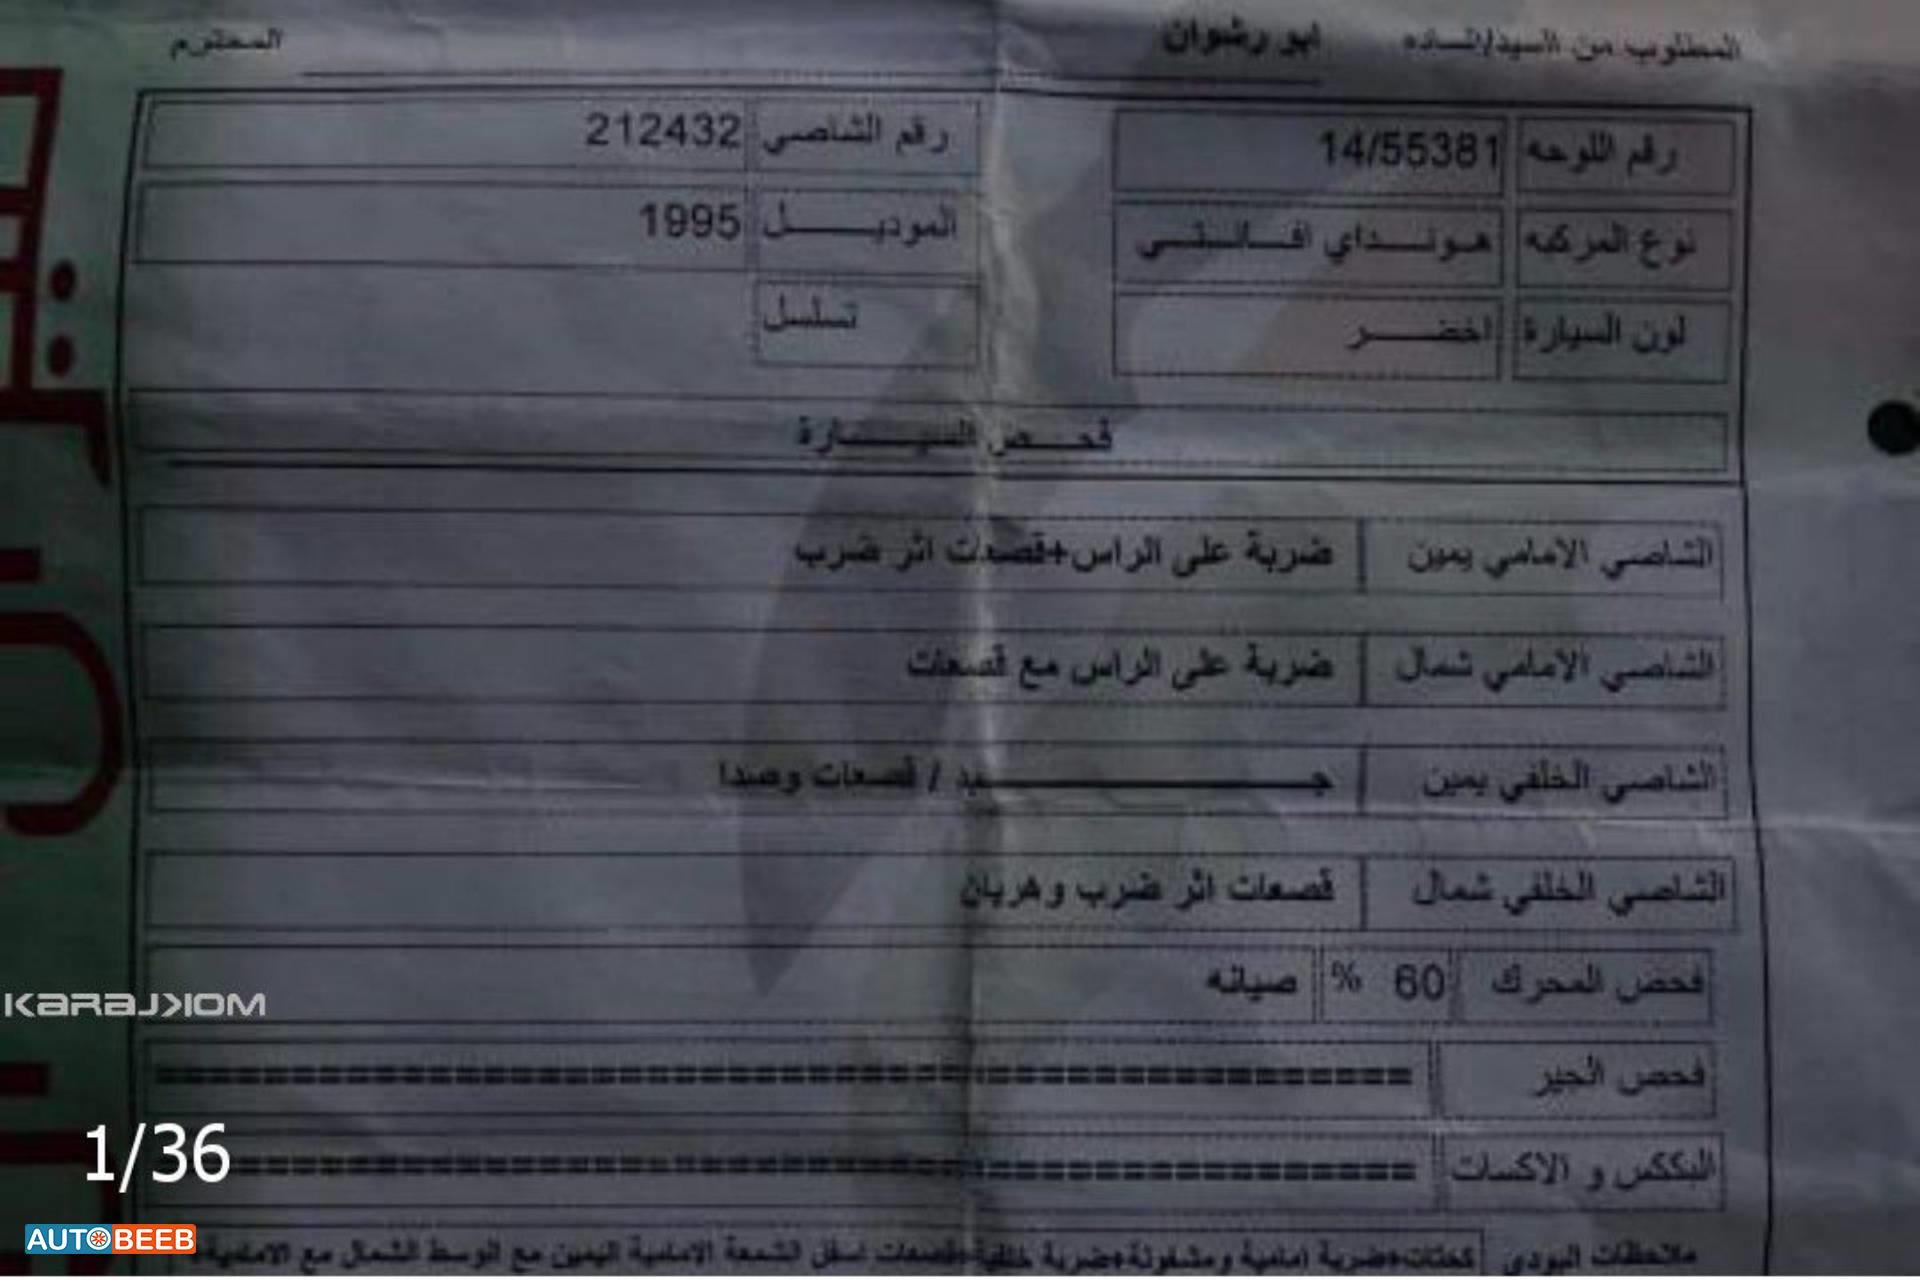 المطلوب من السيد/الساده ابو رشوان المحترم
رقم اللوحه 14/55381 رقم الشاصي 212432
نوع المركبه هونداي افانتي الموديل 1995
لون السيارة اخضر تسلسل
فحص السيارة
الشاصي الامامي يمين ضربة على الراس+قصعات اثر ضرب
الشاصي الامامي شمال ضربة على الراس مع قصعات
الشاصي الخلفي يمين جيد / قصعات وصدا
الشاصي الخلفي شمال قصعات اثر ضرب وهريان
فحص المحرك 60 % صيانه
فحص الجير ==============================================
البككس و الاكسات ==============================================
ملاحظات البودي كحتات+ضربة امامية ومشغولة+ضربة خلفية+قصعات اسفل الشمعة الامامية اليمين مع الوسط الشمال مع الامامية
KARAJKOM
1/36
AUTOBEEB